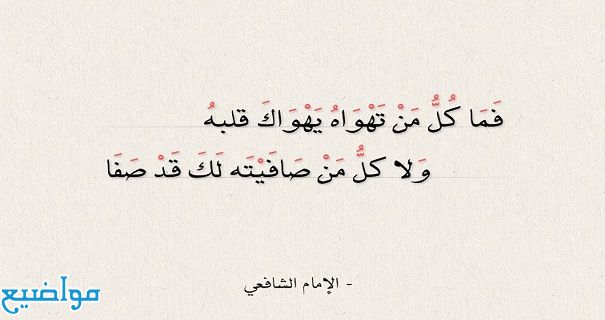 فَمَا كُلُّ مَنْ تَهْوَاهُ يَهْوَاكَ قلبهُ
وَلا كلُّ مَنْ صَافَيْتَه لَكَ قَدْ صَفَا
- الإمام الشافعي
مواضيع